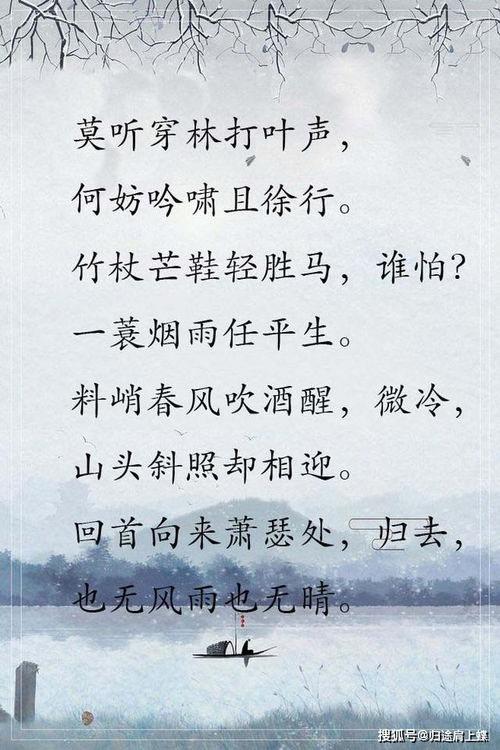 莫听穿林打叶声，
何妨吟啸且徐行。
竹杖芒鞋轻胜马，谁怕？
一蓑烟雨任平生。
料峭春风吹酒醒，微冷，
山头斜照却相迎。
回首向来萧瑟处，归去，
也无风雨也无晴。
搜狐号@归途肩上蝶